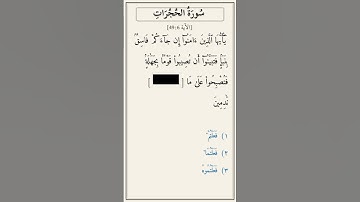 سُورَةُ الحُجُرَاتِ
[الآية 49:6]
يَٰٓأَيُّهَا ٱلَّذِينَ ءَامَنُوٓا۟ إِن جَآءَكُمْ فَاسِقٌۢ
بِنَبَإٍ فَتَبَيَّنُوٓا۟ أَن تُصِيبُوا۟ قَوْمًۢا بِجَهَٰلَةٍ
فَتُصْبِحُوا۟ عَلَىٰ مَا [ ]
نَٰدِمِينَ
١) فَعَلْتُمْ
٢) فَعَلْتُمَا
٣) فَعَلْتُمُوهُ